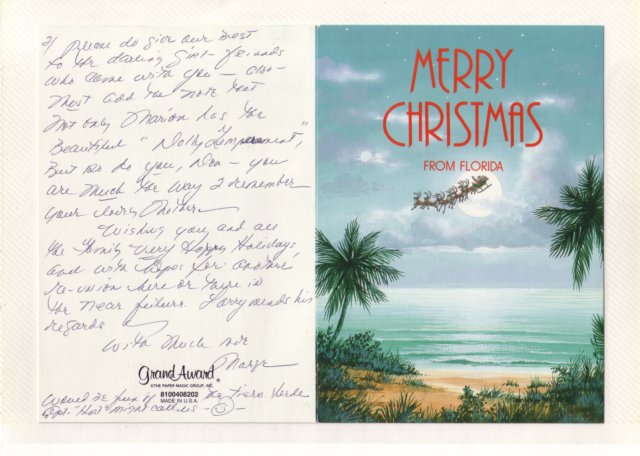 2/ Please do give our best
to the darling girl-friends
who came with you – also –
must add the note that
not only Marion has the
Beautiful "Dolly Temperament",
But so do you, – you
are much the way I remember
your lovely Mother
Wishing you and all
the family very Happy Holidays,
and with hopes for another
re-union here or there in
the near future. Larry sends his
regards
With much love
Marge
Would be fun if the Tierra Verde
"Host" might call us –
Grand Award
©THE PAPER MAGIC GROUP, INC.
8100408202
MADE IN U.S.A.
MERRY
CHRISTMAS
FROM FLORIDA